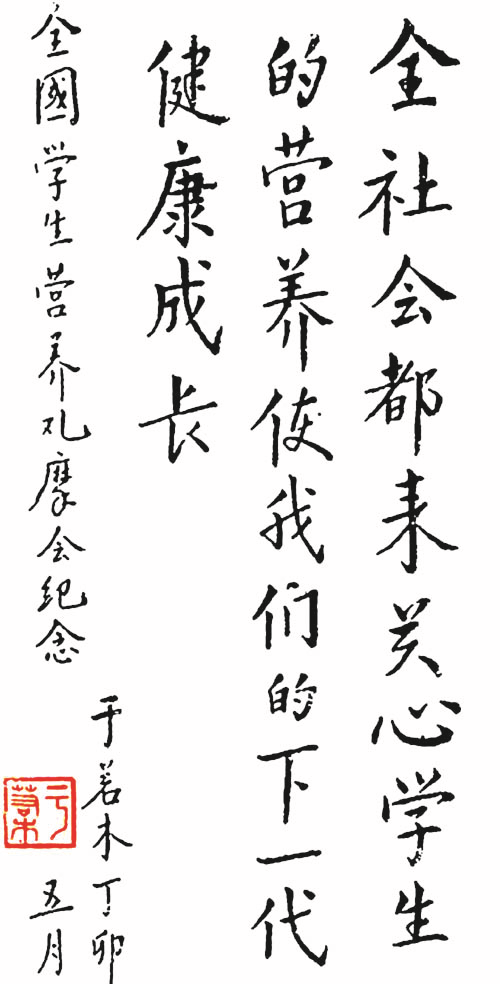 全社会都来关心学生
的营养使我们的下一代
健康成长
全國学生营养观摩会纪念
于若木丁卯
五月
于若木